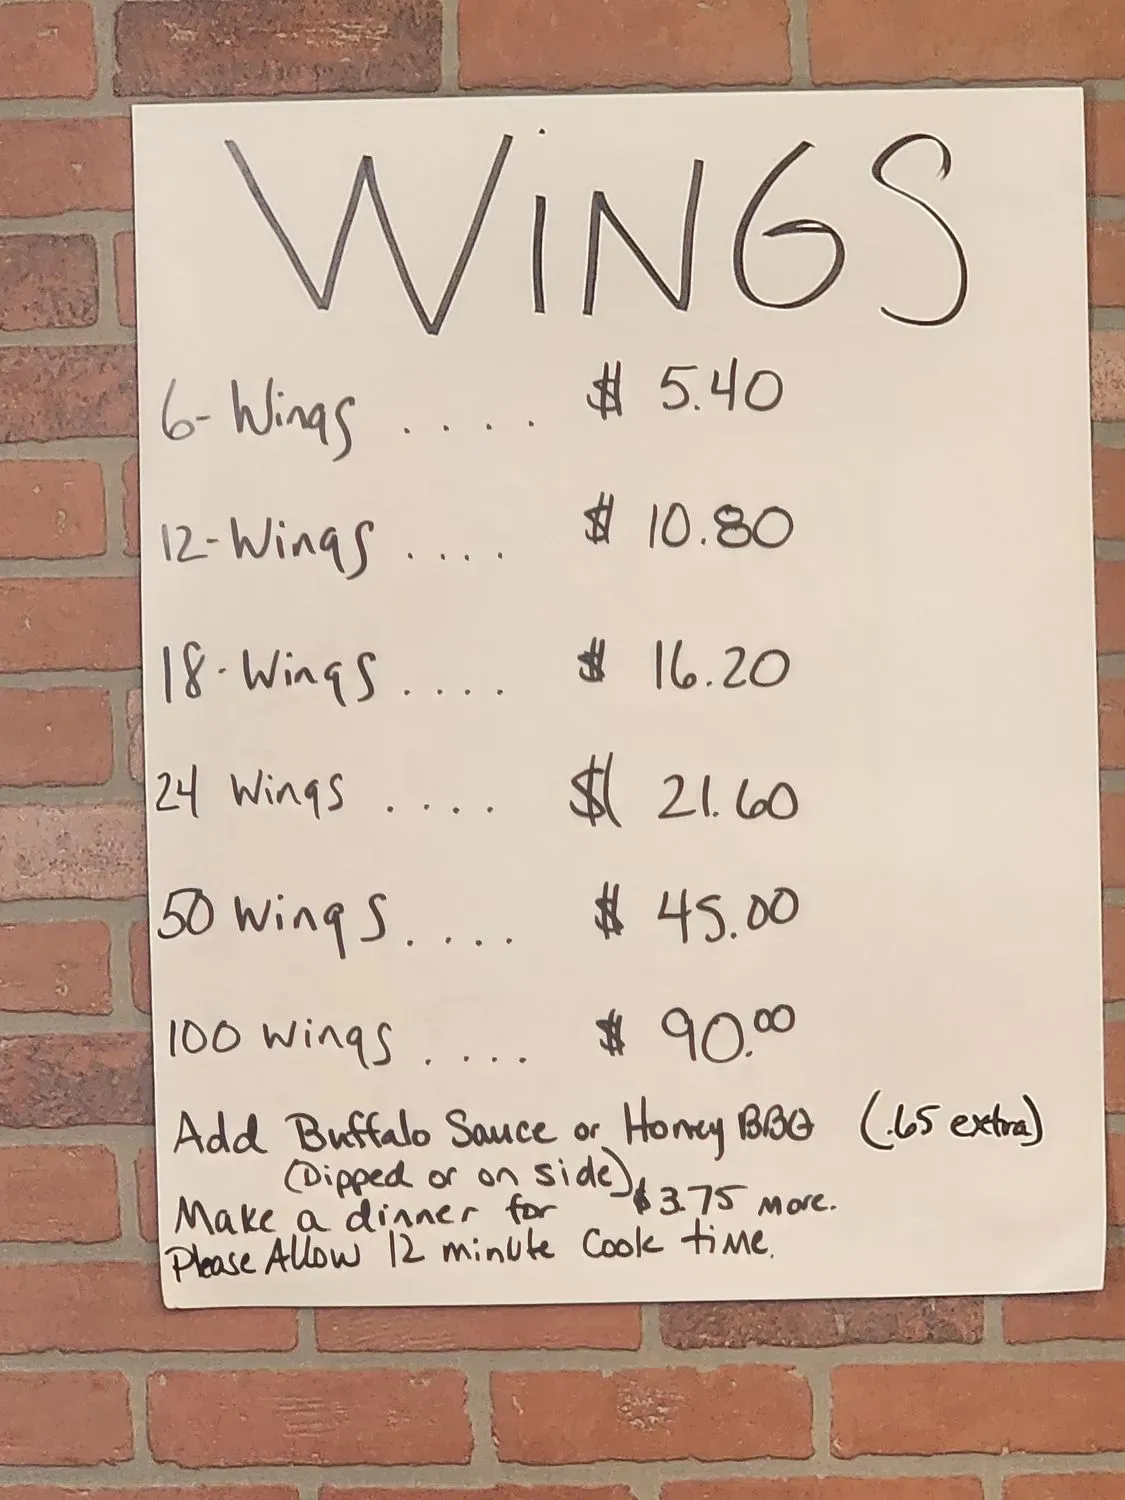 WiNGS
6- Wings .... $ 5.40
12-Wings .... $ 10.80
18-Wings .... $ 16.20
24 Wings .... $ 21.60
50 Wings .... $ 45.00
100 Wings .... $ 90.00
Add Buffalo Sauce or Honey BBQ (.65 extra)
(Dipped or on side)
Make a dinner for $3.75 more.
Please Allow 12 minute Cook time.